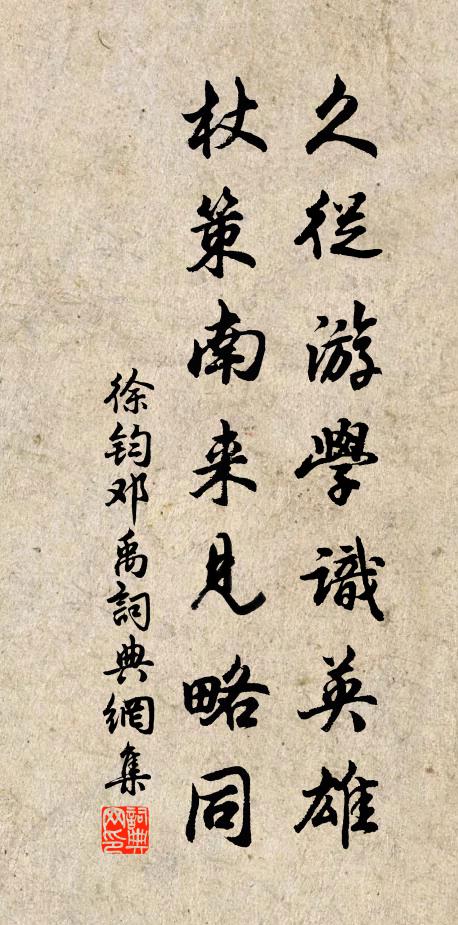 久從游學識英雄
杖策南来見略同
徐鈞邓禹詞典網集
詞典网印